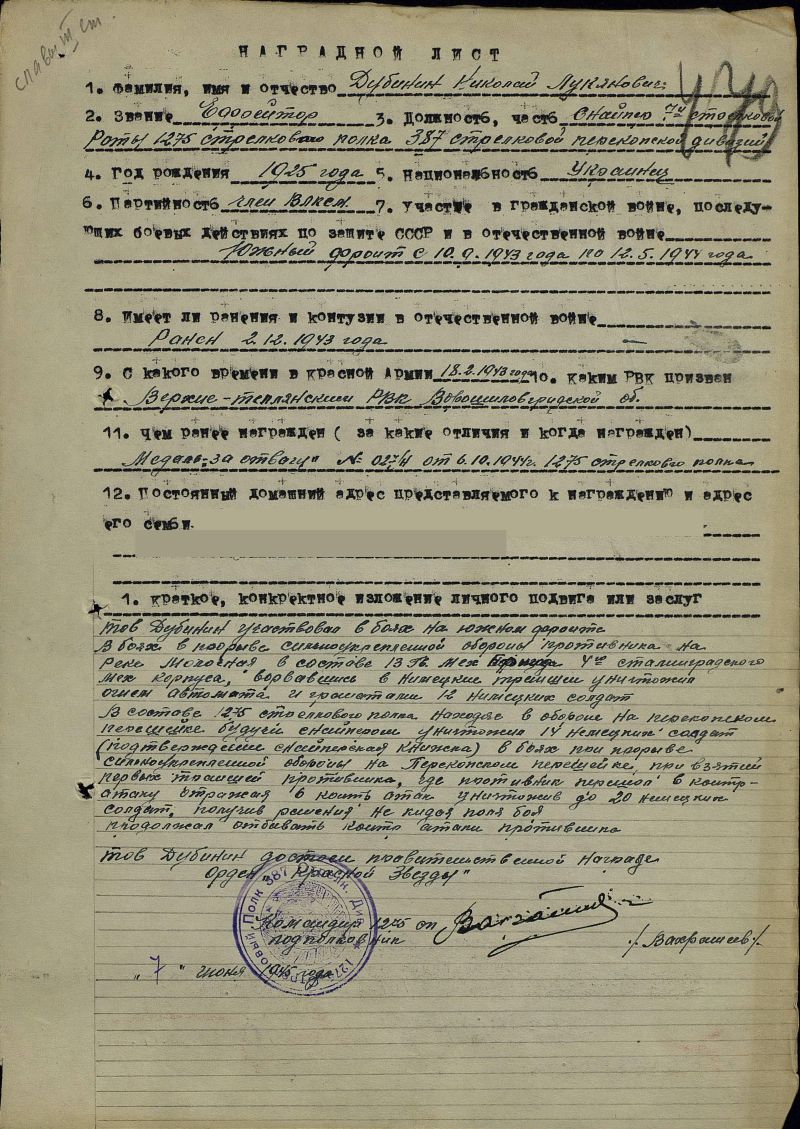 славы III ст
НАГРАДНОЙ ЛИСТ
1. Фамилия, имя и отчество Дубинин Николай Лукянович
2. Звание Ефрейтор 3. Должность, часть Снайпер 7й стрелковой
Роты 1275 стрелкового полка 387 стрелковой перекопской дивизии
4. Год рождения 1925 года 5. Национальность Украинец
6. Партийность член Влксм 7. Участие в гражданской войне, последу-
ющих боевых действиях по защите СССР и в отечественной войне
Южный фронт с 10.9.1943 года по 12.5.1944 года
8. Имеет ли ранения и контузии в отечественной войне
Ранен 2.12.1943 года
9. С какого времени в Красной Армии 18.2.1943 года 10. Каким РВК призван
Верхне-теплянским РВК Ворошиловградской об.
11. Чем ранее награжден ( за какие отличия и когда награжден)
Медаль "за отвагу" № от 6.10.1944г. 1275 стрелкового полка
12. Постоянный домашний адрес представляемого к награждению и адрес
его семьи.
1. Краткое, конкретное изложение личного подвига или заслуг
тов Дубинин участвовал в боях на южном фронте
В боях в прорыве сильноукрепленной обороны противника на
Реке Молочная в составе 13 Гв. Мех 4го сталинградского
Мех корпуса, ворвавшись в немецкие траншеи уничтожил
огнем автомата и гранатами 12 немецких солдат
В составе 1275 стрелкового полка находясь в обороне на перекопском
перешейке будучи снайпером уничтожил 14 немецких солдат
(подтверждение снайперская книжка) в боях при прорыве
сильноукрепленной обороны на Перекопском перешейке, при взятии
первых траншей противника, где противник перешол в контр-
атаку отражая контр атак уничтожив до 20 немецких
солдат, получив ранения не кидая поля боя
продолжал отбивать контр атаки противника
тов Дубинин достоин правительственной награде
Орден "Красной Звезды"
Командир 1275 сп
подполковник /Вахрашев/
"7" июня 1945 года
1275 Стрелковый Полк 387 Стрелк. Див.